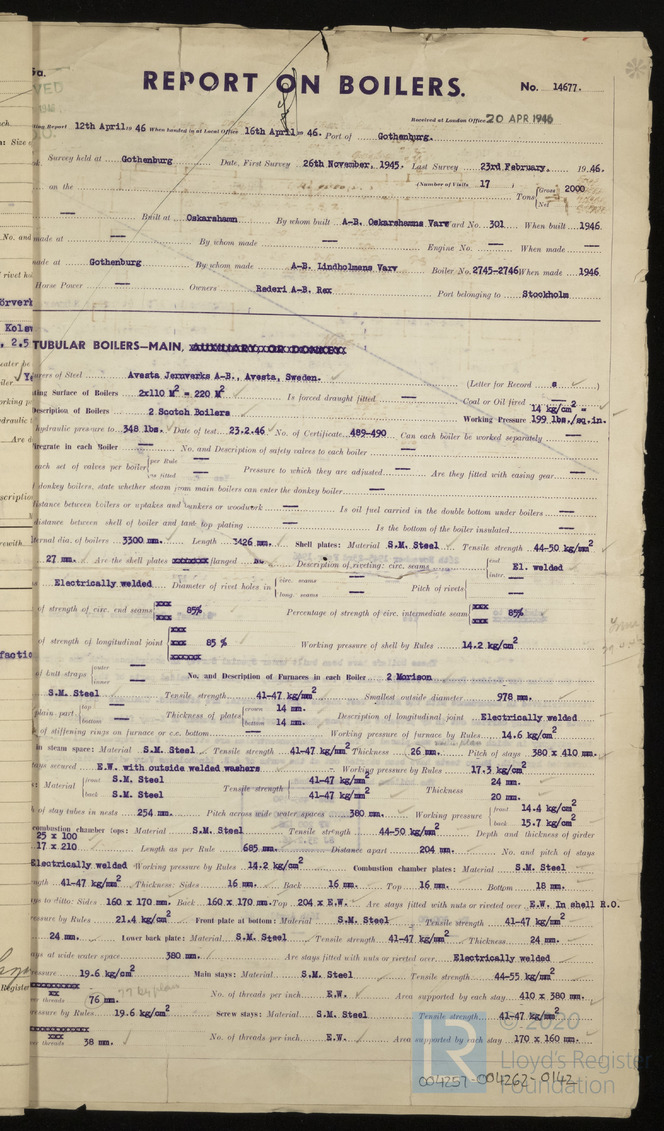 5a.
REPORT ON BOILERS.
No. 14677.
Received at London Office 20 APR 1946
ing Report 12th April 19 46 When handed in at Local Office 16th April 19 46. Port of Gothenburg.
Survey held at Gothenburg Date, First Survey 26th November, 1945. Last Survey 23rd February. 19 46.
on the (Number of Visits 17 ) Tons {Gross 2000 Net
Built at Oskarshamn By whom built A-B. Oskarshamns Varv ard No. 301 When built 1946
made at — By whom made — Engine No. — When made —
ade at Gothenburg By whom made A-B. Lindholmens Varv Boiler No. 2745-2746 When made 1946
Horse Power — Owners Rederi A-B. Rex Port belonging to Stockholm
TUBULAR BOILERS—MAIN, AUXILIARY OR DONKEY.
urers of Steel Avesta Jernverks A-B., Avesta, Sweden. (Letter for Record s )
ting Surface of Boilers 2x110 M2 = 220 M2 Is forced draught fitted — Coal or Oil fired —
Description of Boilers 2 Scotch Boilers Working Pressure 14 kg/cm2 = 199 lbs./sq.in.
hydraulic pressure to 348 lbs. Date of test 23.2.46 No. of Certificate 489-490 Can each boiler be worked separately —
Firegrate in each Boiler — No. and Description of safety valves to each boiler —
each set of valves per boiler {per Rule — as fitted — Pressure to which they are adjusted — Are they fitted with easing gear —
f donkey boilers, state whether steam from main boilers can enter the donkey boiler —
distance between boilers or uptakes and bunkers or woodwork — Is oil fuel carried in the double bottom under boilers —
distance between shell of boiler and tank top plating — Is the bottom of the boiler insulated —
ternal dia. of boilers 3300 mm. Length 3426 mm. Shell plates: Material S.M. Steel Tensile strength 44-50 kg/mm2
27 mm. Are the shell plates xxxxxxx flanged no Description of riveting: circ. seams {end El. welded inter. —
s Electrically welded Diameter of rivet holes in {circ. seams — long. seams — Pitch of rivets { —
of strength of circ. end seams xxx 85% xxx Percentage of strength of circ. intermediate seam xxx 85% xxx
of strength of longitudinal joint xxx xxx 85 % xxxxxx Working pressure of shell by Rules 14.2 kg/cm2
of butt straps {outer — inner — No. and Description of Furnaces in each Boiler 2 Morison
S.M. Steel Tensile strength 41-47 kg/mm2 Smallest outside diameter 978 mm.
plain part {top — bottom — Thickness of plates {crown 14 mm. bottom 14 mm. Description of longitudinal joint Electrically welded
of stiffening rings on furnace or c.c. bottom — Working pressure of furnace by Rules 14.6 kg/cm2
in steam space: Material S.M. Steel Tensile strength 41-47 kg/mm2 Thickness 26 mm. Pitch of stays 380 x 410 mm.
ays secured E.W. with outside welded washers Working pressure by Rules 17.3 kg/cm2
: Material {front S.M. Steel back S.M. Steel Tensile strength {41-47 kg/mm2 41-47 kg/mm2 Thickness {24 mm. 20 mm.
h of stay tubes in nests 254 mm. Pitch across wide water spaces 380 mm. Working pressure {front 14.4 kg/cm2 back 15.7 kg/cm2
combustion chamber tops: Material S.M. Steel Tensile strength 44-50 kg/mm2 Depth and thickness of girder
25 x 100
17 x 210 Length as per Rule 685 mm. Distance apart 204 mm. No. and pitch of stays
Electrically welded Working pressure by Rules 14.2 kg/cm2 Combustion chamber plates: Material S.M. Steel
ngth 41-47 kg/mm2 Thickness: Sides 16 mm. Back 16 mm. Top 16 mm. Bottom 18 mm.
ys to ditto: Sides 160 x 170 mm. Back 160 x 170 mm. Top 204 x E.W. Are stays fitted with nuts or riveted over E.W. In shell R.O.
ressure by Rules 21.4 kg/cm2 Front plate at bottom: Material S.M. Steel Tensile strength 41-47 kg/cm2
24 mm. Lower back plate: Material S.M. Steel Tensile strength 41-47 kg/mm2 Thickness 24 mm.
ays at wide water space 380 mm. Are stays fitted with nuts or riveted over Electrically welded
ressure 19.6 kg/cm2 Main stays: Material S.M. Steel Tensile strength 44-55 kg/mm2
xxxxxxxxxx xx
er threads 76 mm. 77 by plan No. of threads per inch E.W. Area supported by each stay 410 x 380 mm.
ressure by Rules 19.6 kg/cm2 Screw stays: Material S.M. Steel Tensile strength 41-47 kg/mm2
xxxxxxxxxxx xxx
er threads 38 mm. No. of threads per inch E.W. Area supported by each stay 170 x 160 mm.
© 2020
Lloyd's Register
Foundation
004257-004262-0142